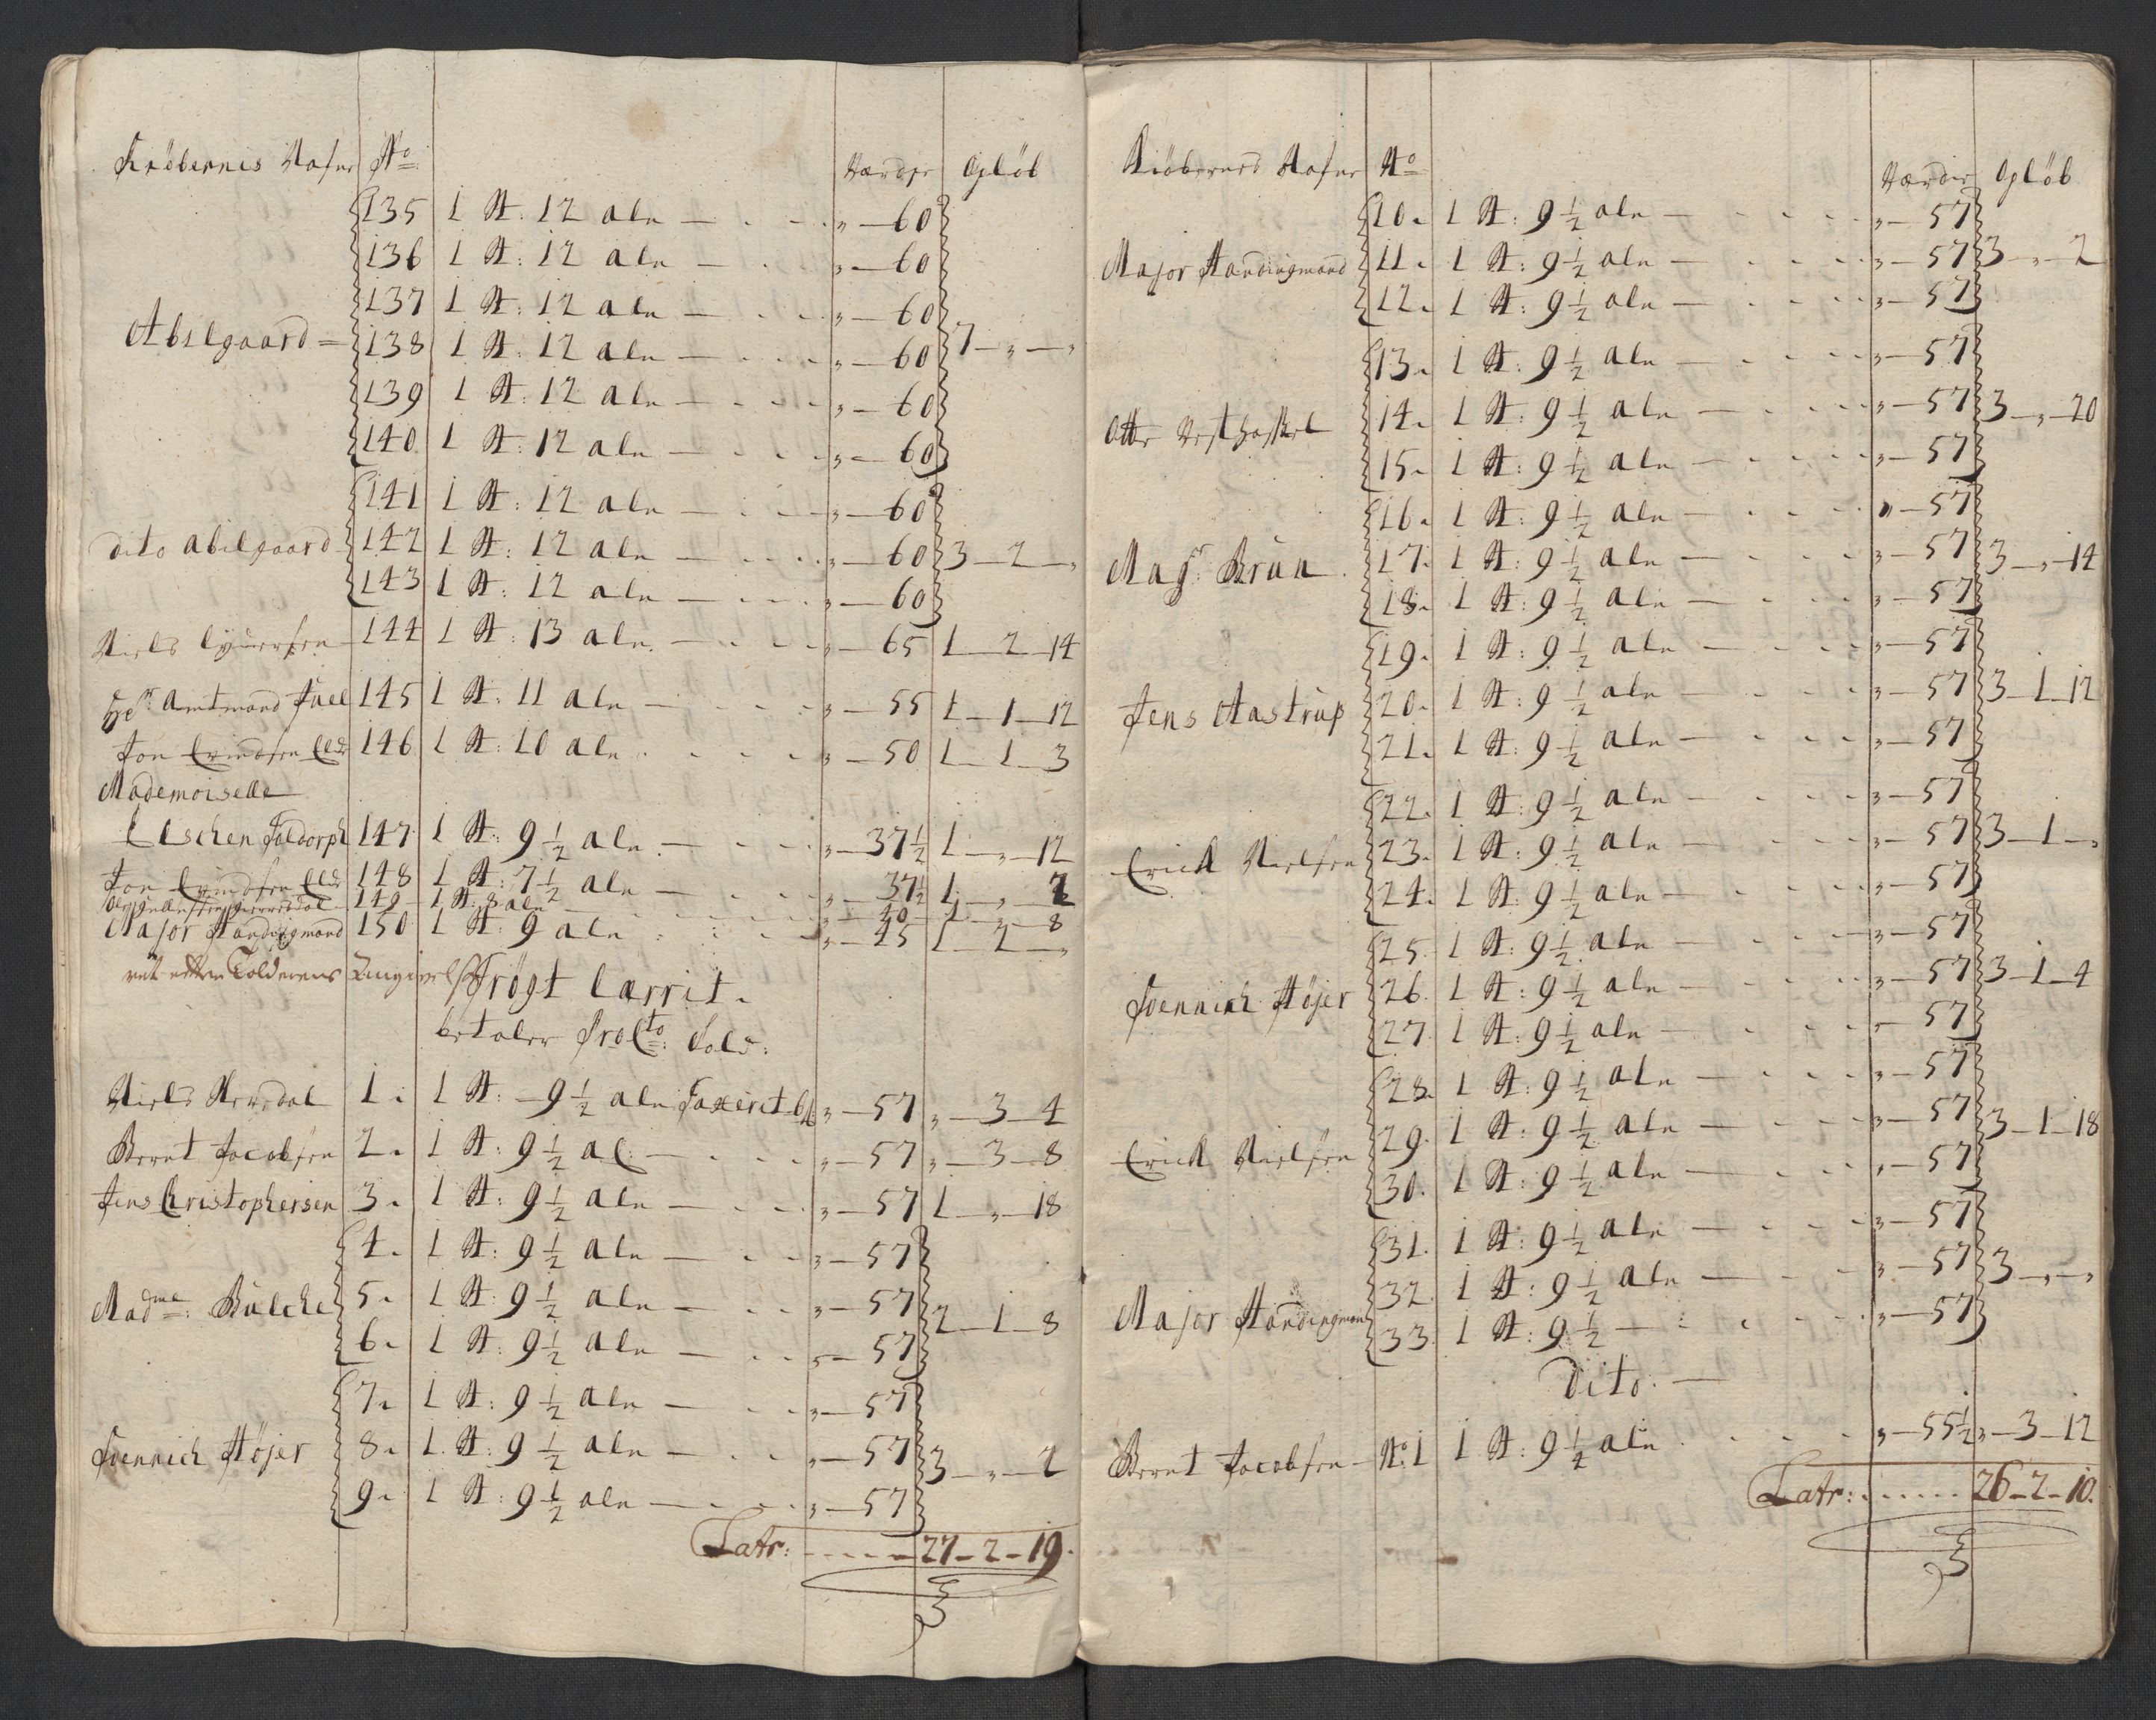 Kiöbernes Nafne No Værdie Opløb
135 1 St: 12 aln — „ — 60
136 1 St: 12 aln — „ — 60
137 1 St: 12 aln — „ — 60
Abilgaard — 138 1 St: 12 aln — „ — 60 7 — „ — „
139 1 St: 12 aln — „ — 60
140 1 St: 12 aln — „ — 60
141 1 St: 12 aln — „ — 60
dito abilgaard 142 1 St: 12 aln — „ — 60 3 — 2 — „
143 1 St: 12 aln — „ — 60
Niels 144 1 St: 13 aln — „ — 65 1 — 2 — 14
Hr Amtmand Juel 145 1 St: 11 aln — „ — 55 1 — 1 — 12
Jon 146 1 St: 10 aln „ — 50 1 — 1 — 3
Mademoiselle
Elschen Foldorph 147 1 St: 9½ aln — „ — 37½ 1 — „ — 12
Jon 148 1 St: 7½ aln — „ — 37½ 1 — „ — 2
149 1 St: 8 aln — „ — 40 1 — „ — 8
Major Handingmand 150 1 St: 9 aln „ — 45 1 — 2 — „
Tolderens Angivelse
Trögt lærrit.
betaler Told:
Niels 1. 1 St: — 9½ aln Taxerit „ — 57 „ — 3 — 4
Bernt Jacobsen 2. 1 St: 9½ al: — „ — 57 „ — 3 — 8
Jens Christophersen 3. 1 St: 9½ aln — „ — 57 1 — „ — 18
4. 1 St: 9½ aln — „ — 57
Madme: Bulche 5. 1 St: 9½ aln — „ — 57 2 — 1 — 8
6. 1 St: 9½ aln — „ — 57
7. 1 St: 9½ aln — „ — 57
Hennich Höjer 8. 1 St: 9½ aln — „ — 57 3 — „ — 2
9. 1 St: 9½ aln — „ — 57
Latr: 27 — 2 — 19.
Kiöbernes Nafne No Værdie Opløb
10. 1 St: 9½ aln — „ — 57
Major Handingmand 11. 1 St: 9½ aln — „ — 57 3 — „ — 2
12. 1 St: 9½ aln — „ — 57
13. 1 St: 9½ aln — „ — 57
Otte 14. 1 St: 9½ aln — „ — 57 3 — „ — 20
15. 1 St: 9½ aln — „ — 57
16. 1 St: 9½ aln — „ — 57
Magr: Brun 17. 1 St: 9½ aln — „ — 57 3 — „ — 14
18. 1 St: 9½ aln — „ — 57
19. 1 St: 9½ aln — „ — 57
Jens Aastrup 20. 1 St: 9½ aln — „ — 57 3 — 1 — 12
21. 1 St: 9½ aln — „ — 57
22. 1 St: 9½ aln — „ — 57
Erich Nielsen 23. 1 St: 9½ aln — „ — 57 3 — 1 — „
24. 1 St: 9½ aln — „ — 57
25. 1 St: 9½ aln — „ — 57
Hennich Höjer 26. 1 St: 9½ aln — „ — 57 3 — 1 — 4
27. 1 St: 9½ aln — „ — 57
28. 1 St: 9½ aln — „ — 57
Erich Nielsen 29. 1 St: 9½ aln — „ — 57 3 — 1 — 18
30. 1 St: 9½ aln — „ — 57
31. 1 St: 9½ aln — „ — 57
32. 1 St: 9½ aln — „ — 57 3 — „ — „
Major Handingman 33. 1 St: 9½ — „ — 57
Dito. —
Bernt Jacobsen — No. 1 1 St: 9¼ aln „ — 55½ „ — 3 — 12
Latr: 26 — 2 — 10.